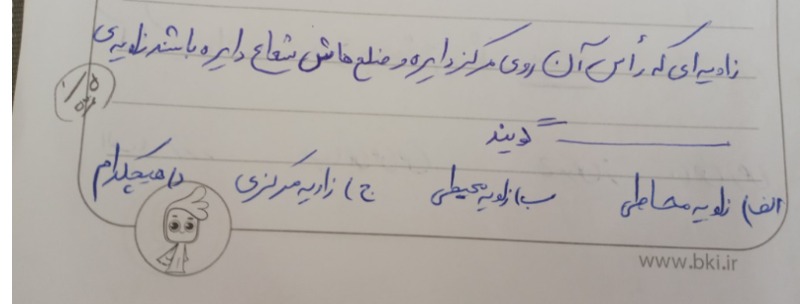 زاویه‌ای که رأس آن روی مرکز دایره و ضلع هاش شعاع دایره باشند زاویه‌ی
ـــــــــ گویند
الف) زاویه محاطی ب) زاویه محیطی ج) زاویه مرکزی د) هیچکدام
www.bki.ir